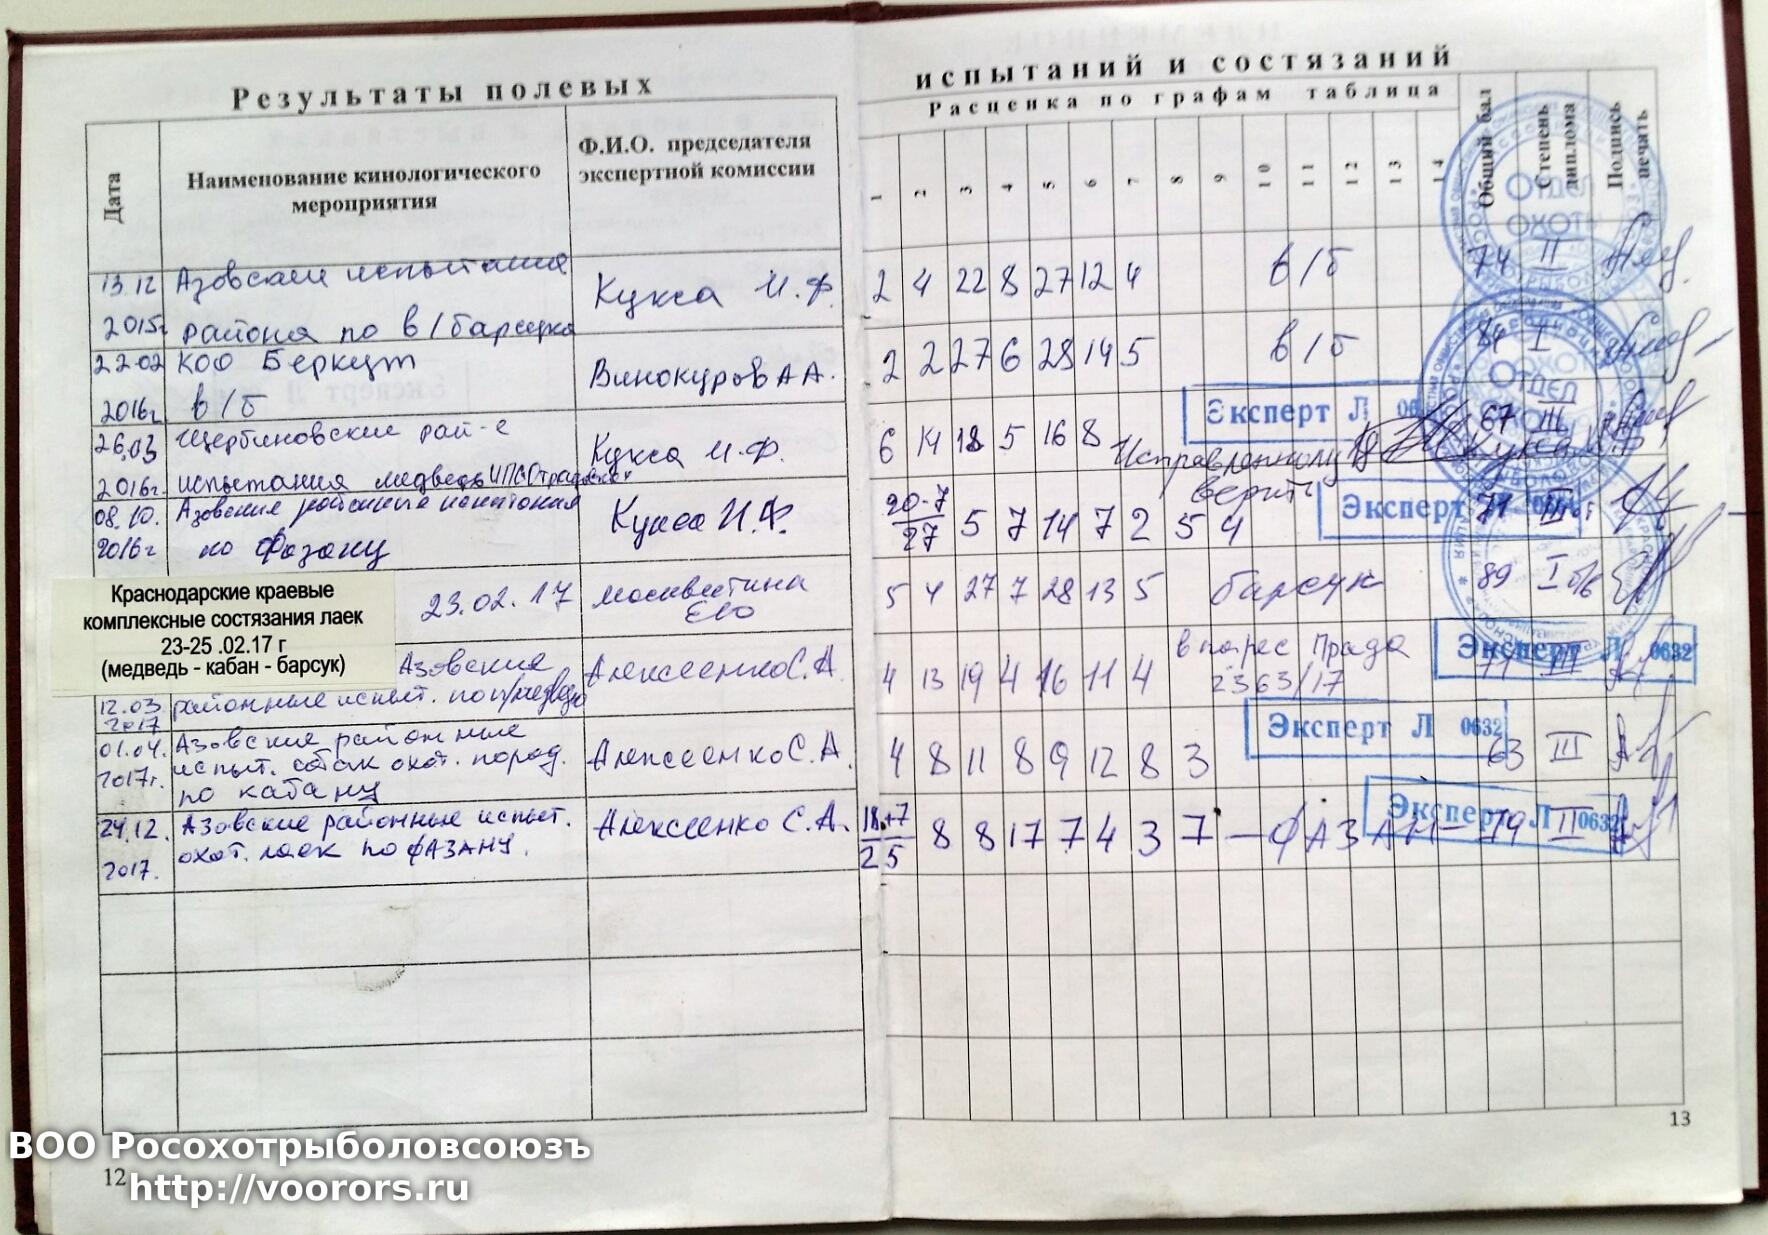 Результаты полевых
испытаний и состязаний
Расценка по графам таблица
Дата
Наименование кинологического
мероприятия
Ф.И.О. председателя
экспертной комиссии
1 2 3 4 5 6 7 8 9 10 11 12 13 14
Общий бал
Степень
диплома
Подпись
печать
13.12
2015г.
Азовский испытания
района по в/барсука
Кукса И.Ф.
2 4 22 8 27 12 4 в/б 74 II
22 02
2016г.
КОО Беркут
в/б
Винокуров А А.
2 2 27 6 28 14 5 в/б 84 I
26.03
2016г.
Щербиновские рай-е
испытания медведь
Кукса И.Ф.
6 14 18 5 16 8 67 III
Исправленному
верить
Кукса И.Ф.
08.10.
2016г
Азовские районные испытания
по фазану
Кукса И.Ф.
20-7
27
5 7 14 7 2 5 4 71 III
Краснодарские краевые
комплексные состязания лаек
23-25 .02.17 г
(медведь - кабан - барсук)
23.02.17
Москвитина
5 4 27 7 28 13 5 барсук 89 I б/в
12.03.
2017
Азовские
районные испыт. по
Алексеенко С.А.
4 13 19 4 16 11 4 III
2363/17
01.04.
2017г.
Азовские районные
испыт. собак охот. пород.
по кабану
Алексеенко С.А.
4 8 11 8 9 12 8 3 63 III
24.12.
2017.
Азовские районные испыт.
охот. лаек по ФАЗАНУ.
Алексеенко С.А.
18.+7
25
8 8 17 7 4 3 7 – ФАЗАН – 79 II
ОТДЕЛ
ОХОТЫ
ОТДЕЛ
Эксперт Л 06
Эксперт
Эксперт Л 0632
Эксперт Л 0632
Эксперт Л 0632
12
13
ВОО Росохотрыболовсоюзъ
http://voorors.ru